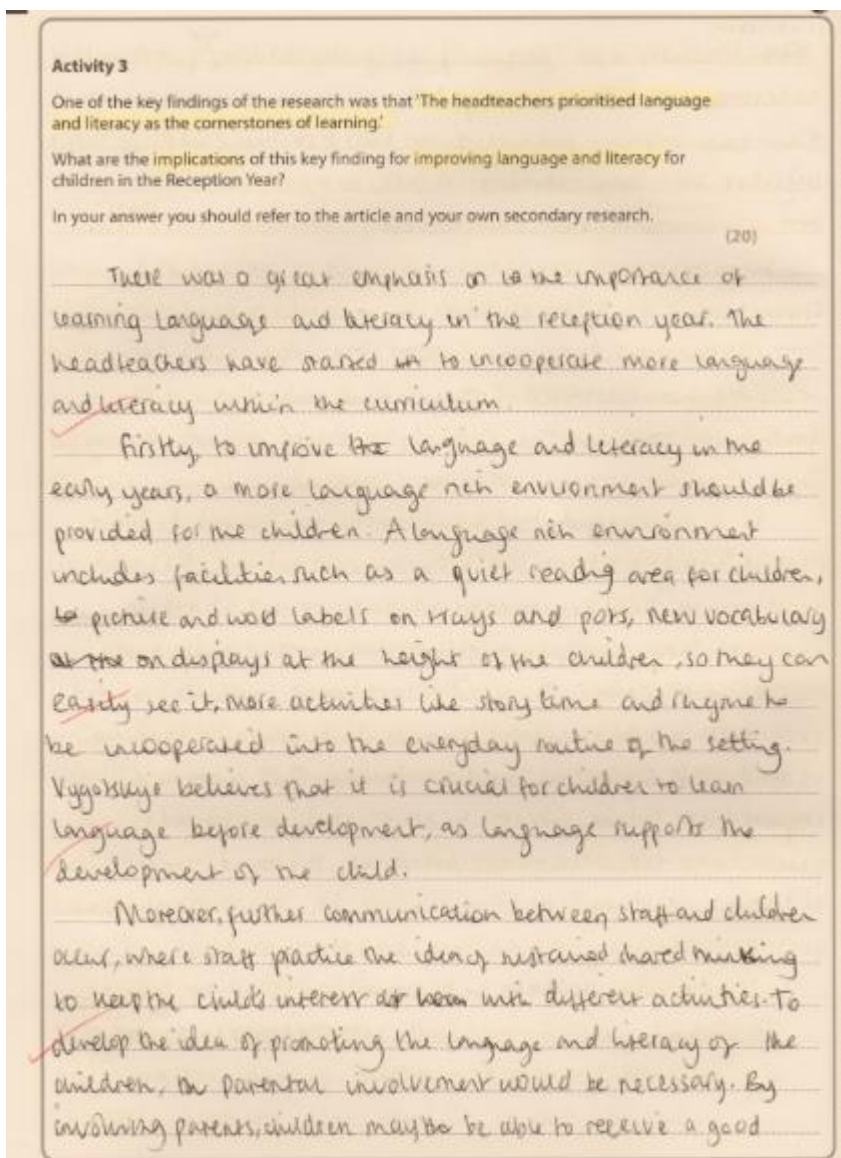 Activity 3
One of the key findings of the research was that 'The headteachers prioritised language
and literacy as the cornerstones of learning.'
What are the implications of this key finding for improving language and literacy for
children in the Reception Year?
In your answer you should refer to the article and your own secondary research.
(20)
There was a great emphasis on to the importance of
learning language and literacy in the reception year. The
headteachers have started to incooperate more language
and literacy within the curriculum.
Firstly, to improve language and literacy in the
early years, a more language rich environment should be
provided for the children. A language rich environment
includes facilities such as a quiet reading area for children,
picture and word labels on trays and pots, new vocabulary
on displays at the height of the children, so they can
easily see it, more activities like story time and rhyme to
be incooperated into the everyday routine of the setting.
Vygotskys believes that it is crucial for children to learn
language before development, as language supports the
development of the child.
Moreover, further communication between staff and children
occur, where staff practice the idea of sustained shared thinking
to keep the child's interest with different activities. To
develop the idea of promoting the language and literacy of the
children, parental involvement would be necessary. By
involving parents, children may be able to receive a good